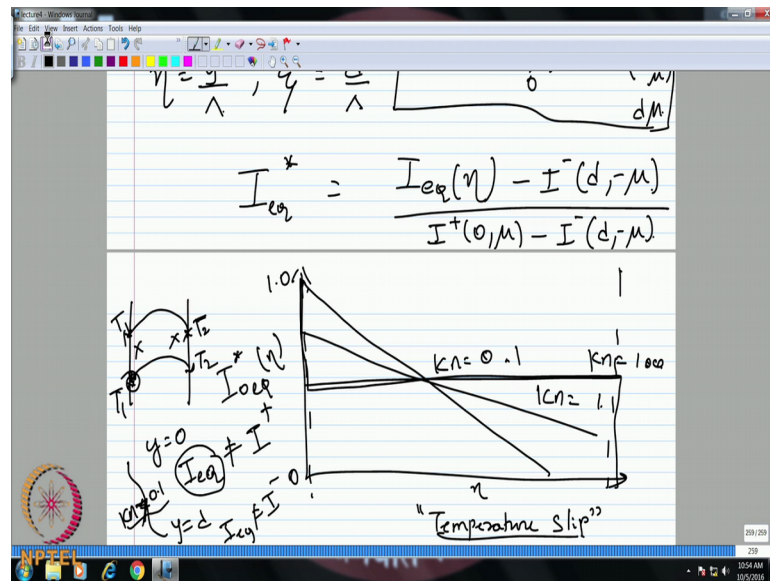 lecture4 - Windows Journal
File Edit View Insert Actions Tools Help
η = y/Λ , ξ = d/Λ
0
(μ)
dμ
I*eq = (Ieq(η) - I⁻(d,-μ)) / (I⁺(0,μ) - I⁻(d,-μ))
1.0
T1 T2
T1 T2
I*0eq (η)
Kn = 0.1
Kn = 100
Kn = 1.1
y=0
Ieq ≠ I⁺
Kn 0.1
y=d Ieq ≠ I⁻
0
η
"Temperature Slip"
259 / 259
259
NPTEL
10:54 AM
10/5/2016